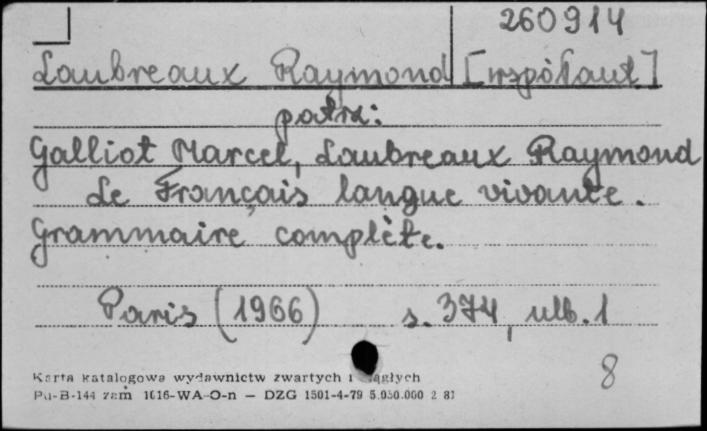 260914
Laubreaux Raymond [współaut]
patrz:
Galliot Marcel, Laubreaux Raymond
Le Français langue vivante.
Grammaire complète.
Paris (1966) s. 374, ulb. 1
8
Karta katalogowa wydawnictw zwartych i ciągłych
Pu-B-144 zam 1616-WA-O-n — DZG 1501-4-79 5.050.000 2 81